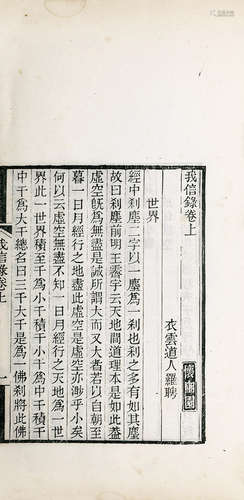 我信錄卷上
衣雲道人羅聘
世界
經中刹塵二字以一塵為一刹也刹之多有如此其
故曰刹塵前明王宇云天地間道理本是如此盡
虛空既為無盡是誠所謂大而又大者若以自朝至
暮一日月經行之地盡此虛空是虛空亦渺乎小矣
何以云虛空無盡不知一日月經行之天地為一世
界此一世界積至千為小千積千小千為中千積千
中千為大千總名曰三千大千是為 佛刹將此佛
我信錄卷上 一